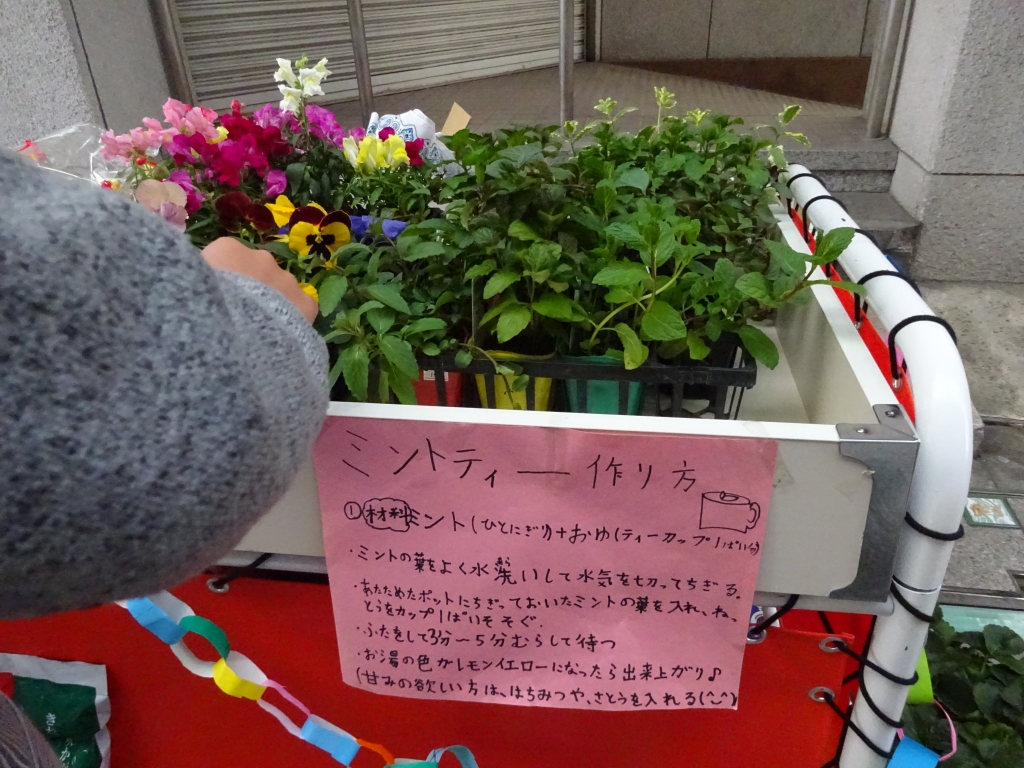 ミントティー 作り方
①材料 ミント(ひとにぎり)+おゆ(ティーカップ1ぱい分)
・ミントの葉をよく水洗いして水気を切ってちぎる。
・あたためたポットにちぎっておいたミントの葉を入れ、ねっ
とうをカップ1ぱいそそぐ.
・ふたをして3分〜5分むらして待つ
・お湯の色がレモンイエローになったら出来上がり♪
(甘みの欲しい方は、はちみつや、さとうを入れる(^_^)